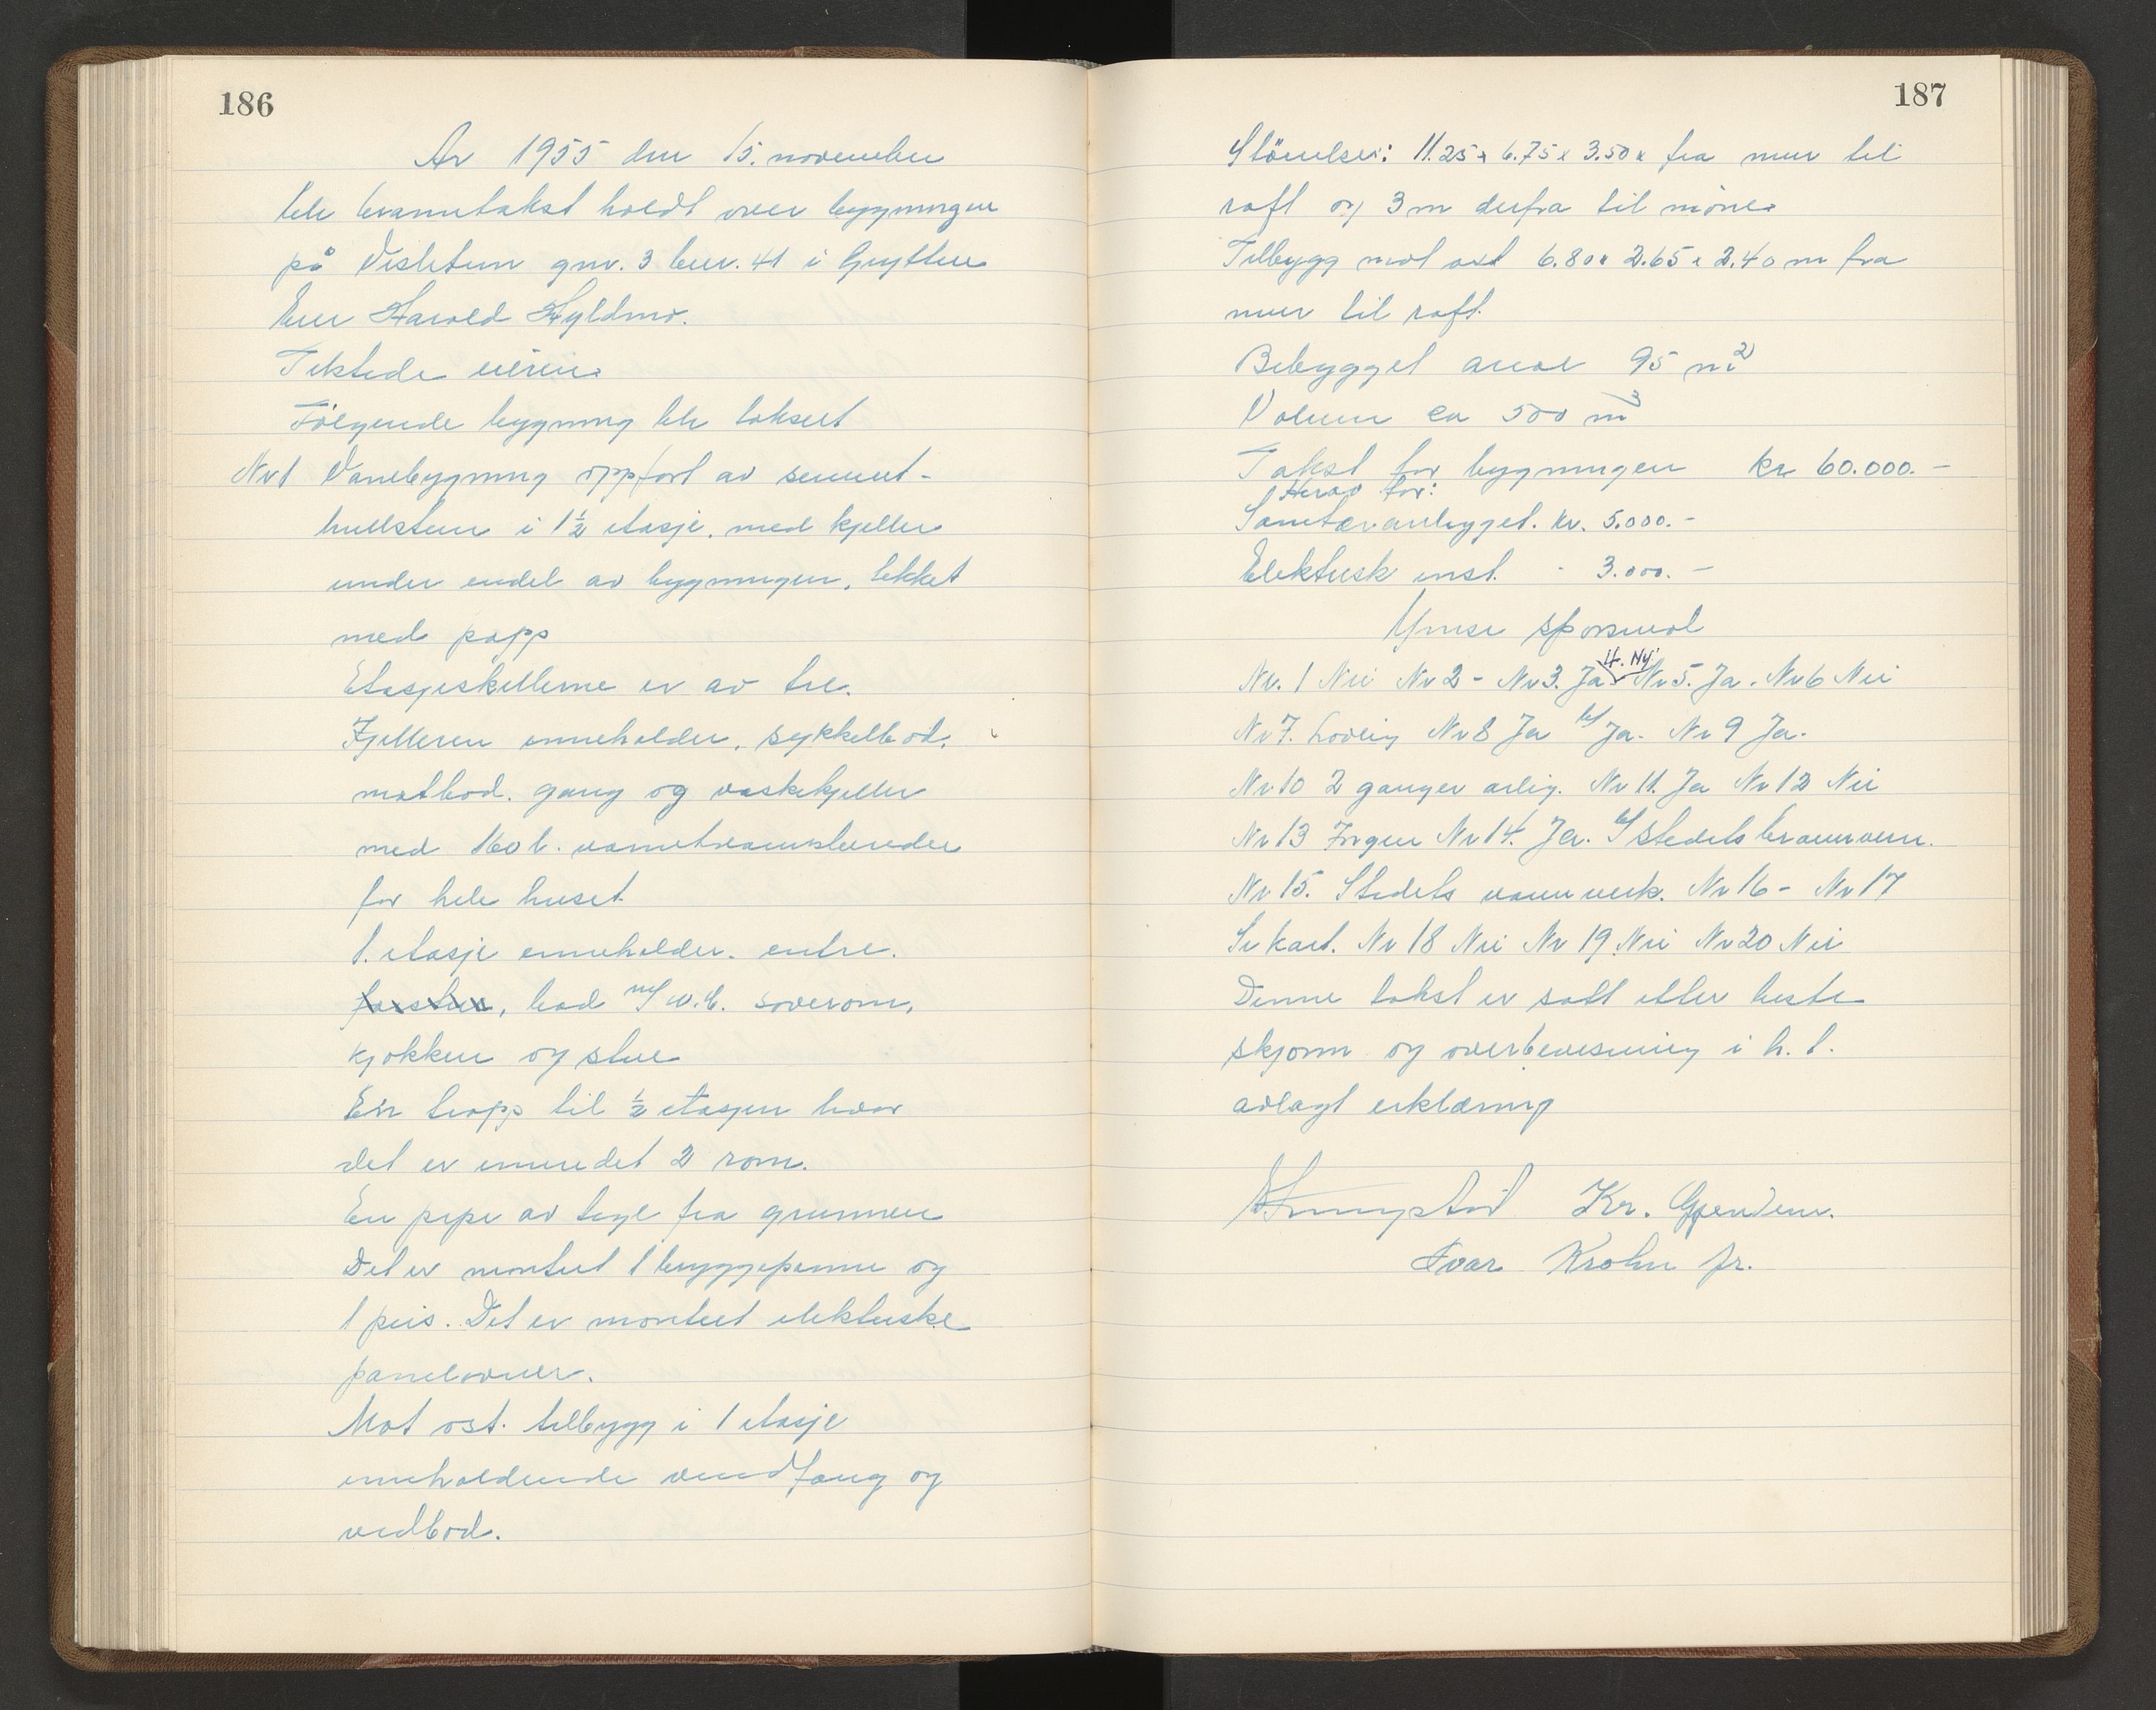 186
År 1955 den 15. november
ble branntakst holdt over bygningen
på Vesletun gnr. 3 bnr. 41 i Grytten
Eier Harald Hyldmo.
Tilstede eieren.
Følgende bygning ble taksert
Nr 1 Vånebygning oppført av sement-
hullstein i 1½ etasje. med kjeller
under endel av bygningen, tekket
med papp
Etasjeskillerne er av tre.
Kjelleren inneholder. sykkelbod.
matbod. gang og vaskekjeller
med 160 l. varmtvannsbereder
for hele huset.
1. etasje inneholder. entre.
bad m/ w.c. soverom,
kjøkken og stue
En trapp til ½ etasjen hvor
det er innredet 2 rom.
En pipe av tegl fra grunnen
Det er montert 1 bryggepanne og
1 peis. Det er montert elektriske
panelovner.
Mot øst. tilbygg i 1 etasje
inneholdende vindfang og
vedbod.
187
Störrelse: 11.25 x 6.75 x 3.50 x fra mur til
raft og 3 m derfra til möne.
Tilbygg mot øst 6.80 x 2.65 x 2.40 m fra
mur til raft.
Bebygget areal 95 m²
Volum ca 500 m³
Takst for bygningen kr 60.000.-
Herav for:
Sanitæranlegget. kr. 5.000.-
Elektrisk inst. - 3.000.-
Ymse spørsmål
4. Ny
Nr. 1 Nei Nr 2 - Nr 3. Ja. Nr 5. Ja. Nr 6 Nei
Nr 7. Lovlig Nr 8 Ja b/ Ja. Nr 9 Ja.
Nr 10 2 ganger årlig. Nr 11. Ja Nr 12 Nei
Nr 13 Ingen Nr 14. Ja. b/ Stedets brannvern.
Nr 15. Stedets vannverk. Nr 16 - Nr 17
Se kart. Nr 18 Nei Nr 19 Nei Nr 20 Nei
Denne takst er satt etter beste
skjønn og overbevisning i h. t.
avlagt erklæring
Kr. Gjerdem.
Ivar Krohn jr.